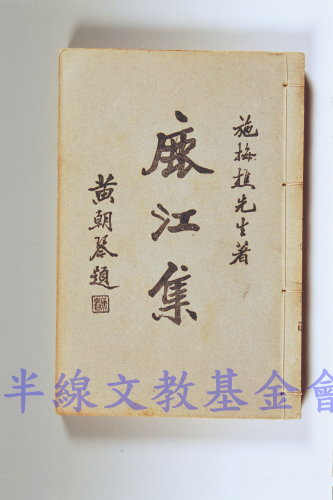 施梅樵先生著
鹿江集
黃朝琴題
半線文教基金會